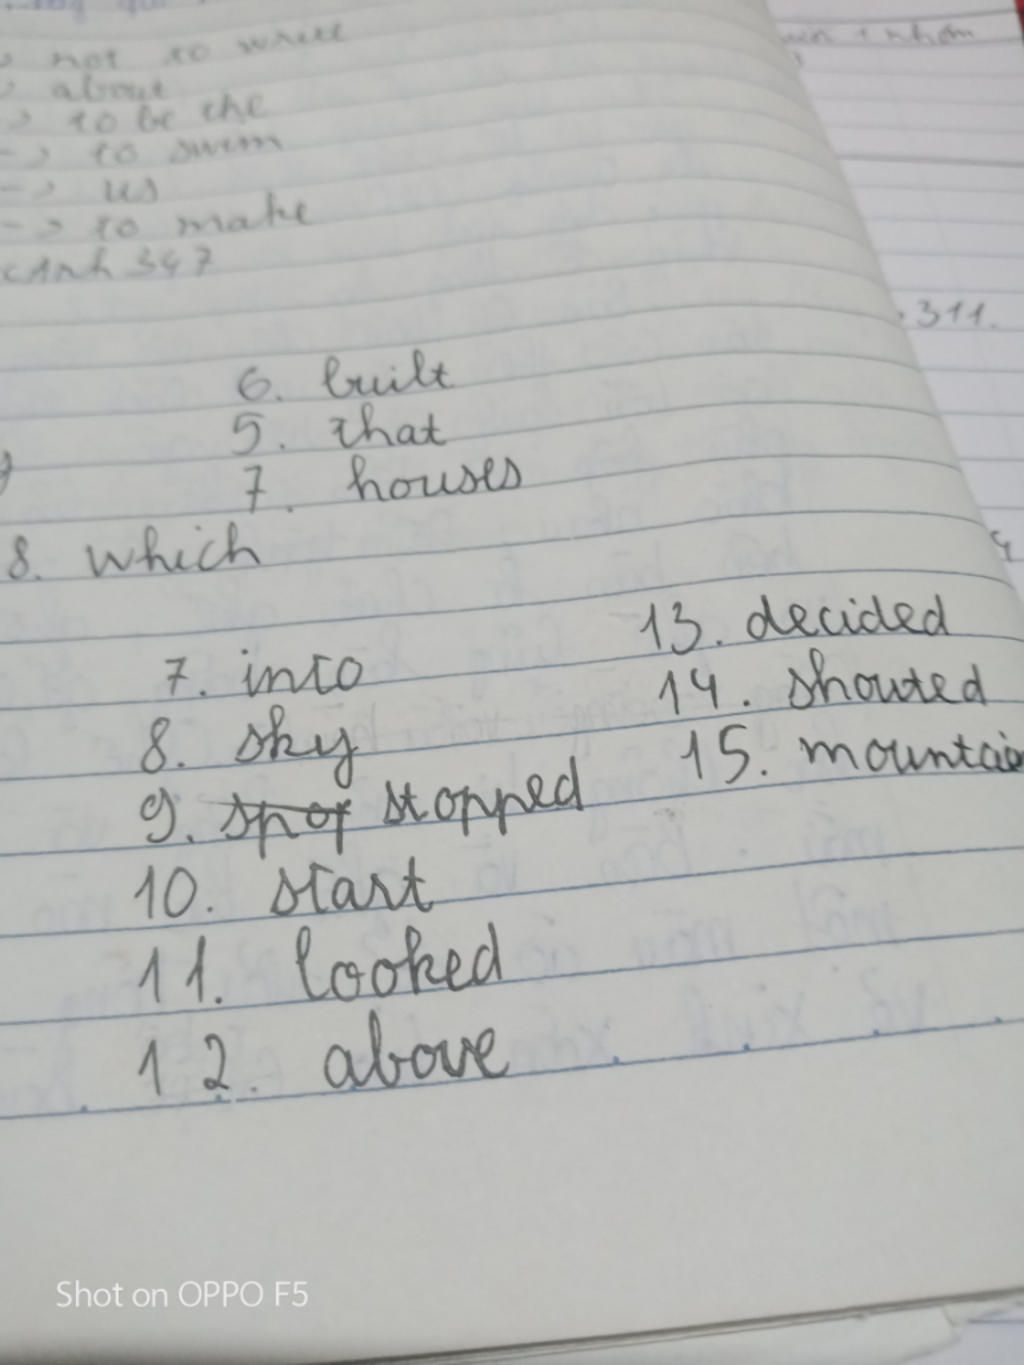 -> not to write
-> about
-> to be the
-> to swim
-> us
-> to make
347
311.
6. built
5. that
7. houses
8. which
7. into
8. sky
9. stopped
10. start
11. looked
12. above
13. decided
14. shouted
15. mountai
Shot on OPPO F5